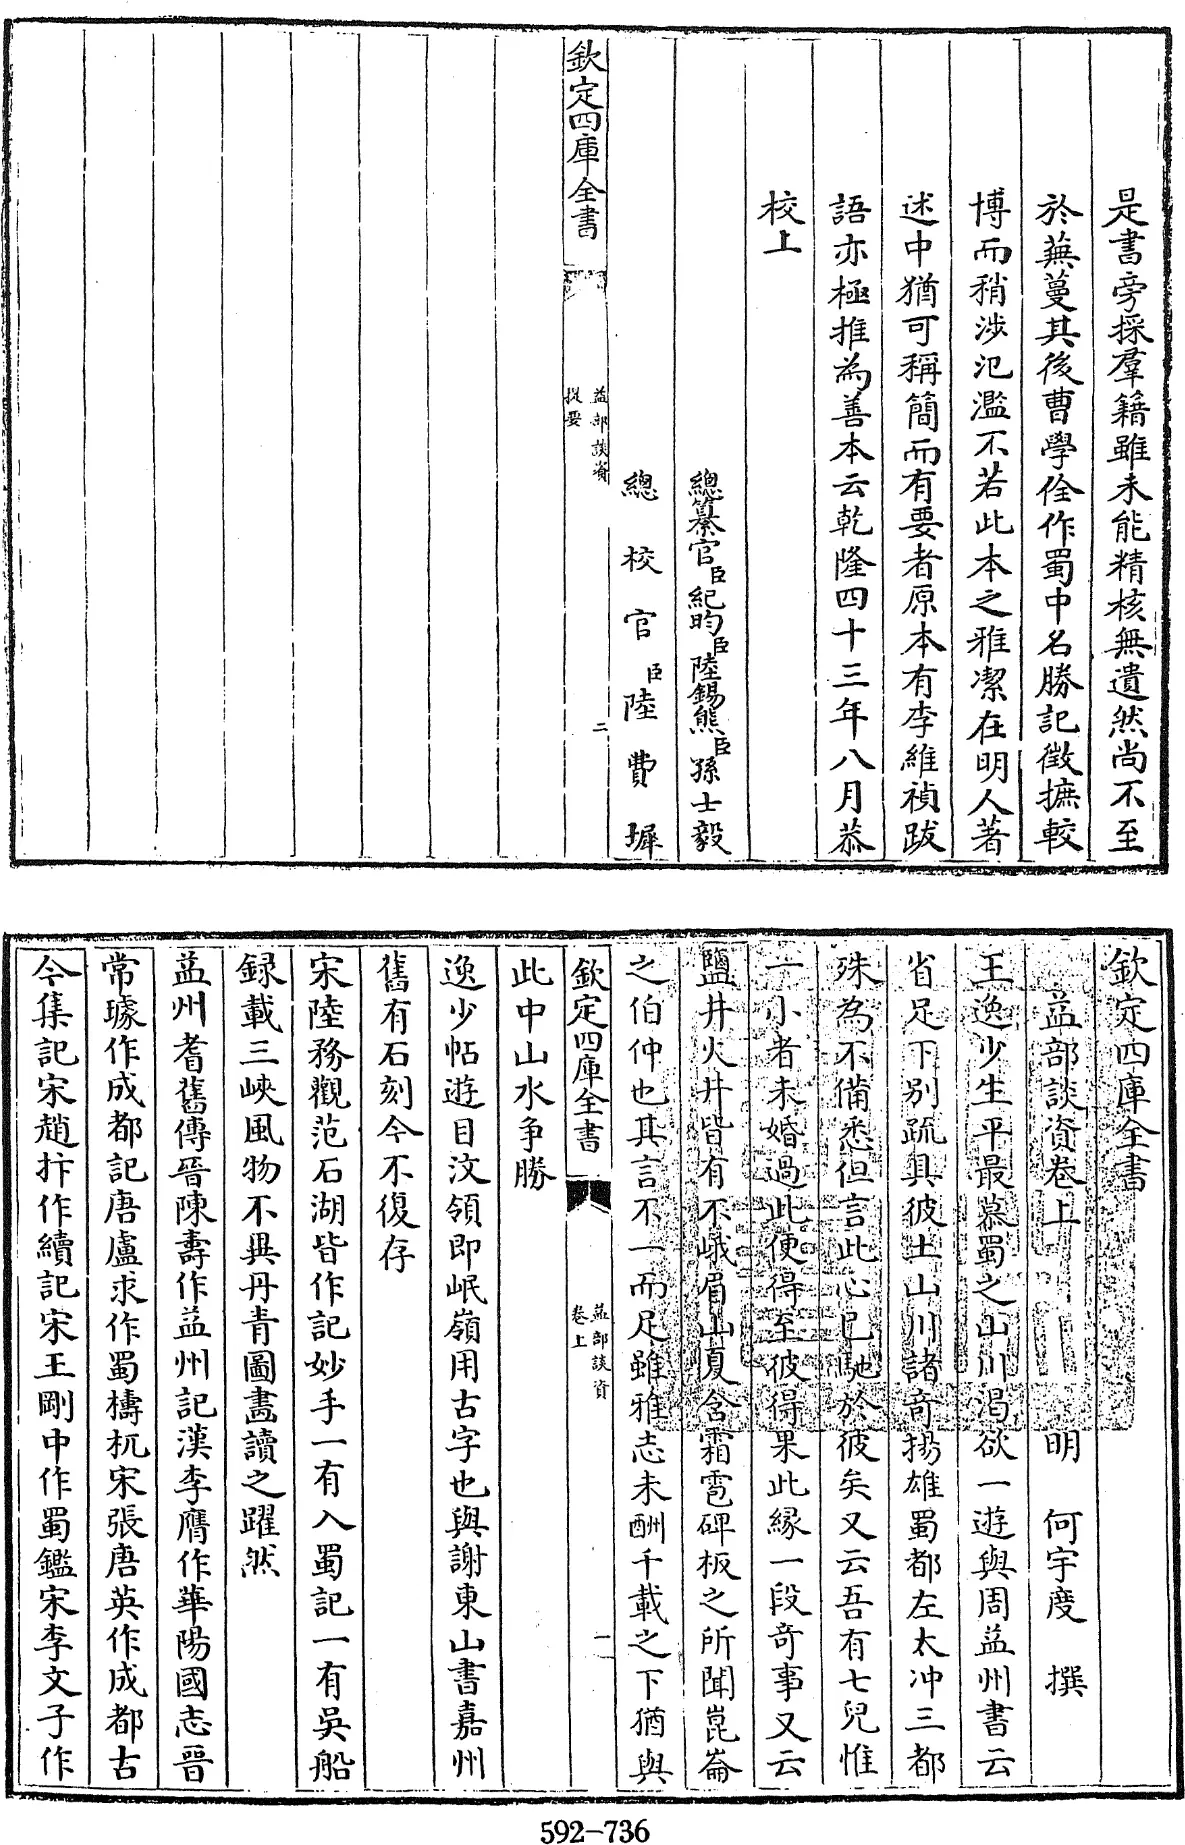 是書旁採羣籍雖未能精核無遺然尚不至
於蕪蔓其後曹學佺作蜀中名勝記徵摭較
博而稍涉氾濫不若此本之雅潔在明人著
述中猶可稱簡而有要者原本有李維禎跋
語亦極推為善本云乾隆四十三年八月恭
校上
總纂官臣紀昀臣陸錫熊臣孫士毅
總校官臣陸費墀
欽定四庫全書
益部談資
提要
二
欽定四庫全書
益部談資卷上
明 何宇度 撰
王逸少生平最慕蜀之山川渴欲一遊與周益州書云
省足下別疏具彼土山川諸奇揚雄蜀都左太冲三都
殊為不備悉但言此心已馳於彼矣又云吾有七兒惟
一小者未婚過此便得至彼得果此縁一段奇事又云
鹽井火井皆有不峨眉山夏含霜雹碑板之所聞崑崙
之伯仲也其言不一而足雖雅志未酬千載之下猶與
欽定四庫全書
益部談資
卷上
一
此中山水争勝
逸少帖遊目汶領即岷嶺用古字也與謝東山書嘉州
舊有石刻今不復存
宋陸務觀范石湖皆作記妙手一有入蜀記一有吳船
録載三峽風物不異丹青圖畫讀之躍然
益州耆舊傳晉陳壽作益州記漢李膺作華陽國志晉
常璩作成都記唐盧求作蜀檮杌宋張唐英作成都古
今集記宋趙抃作續記宋王剛中作蜀鑑宋李文子作
592-736